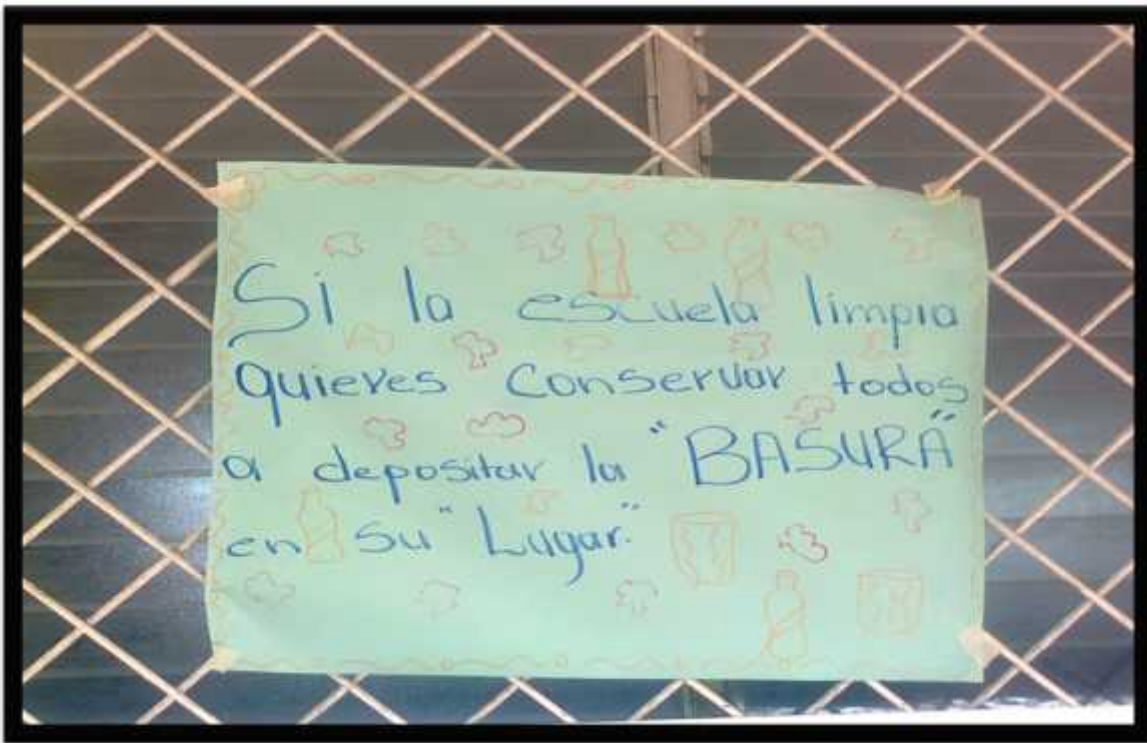 Si la escuela limpia
quieres conservar todos
a depositar la "BASURA"
en su "Lugar."